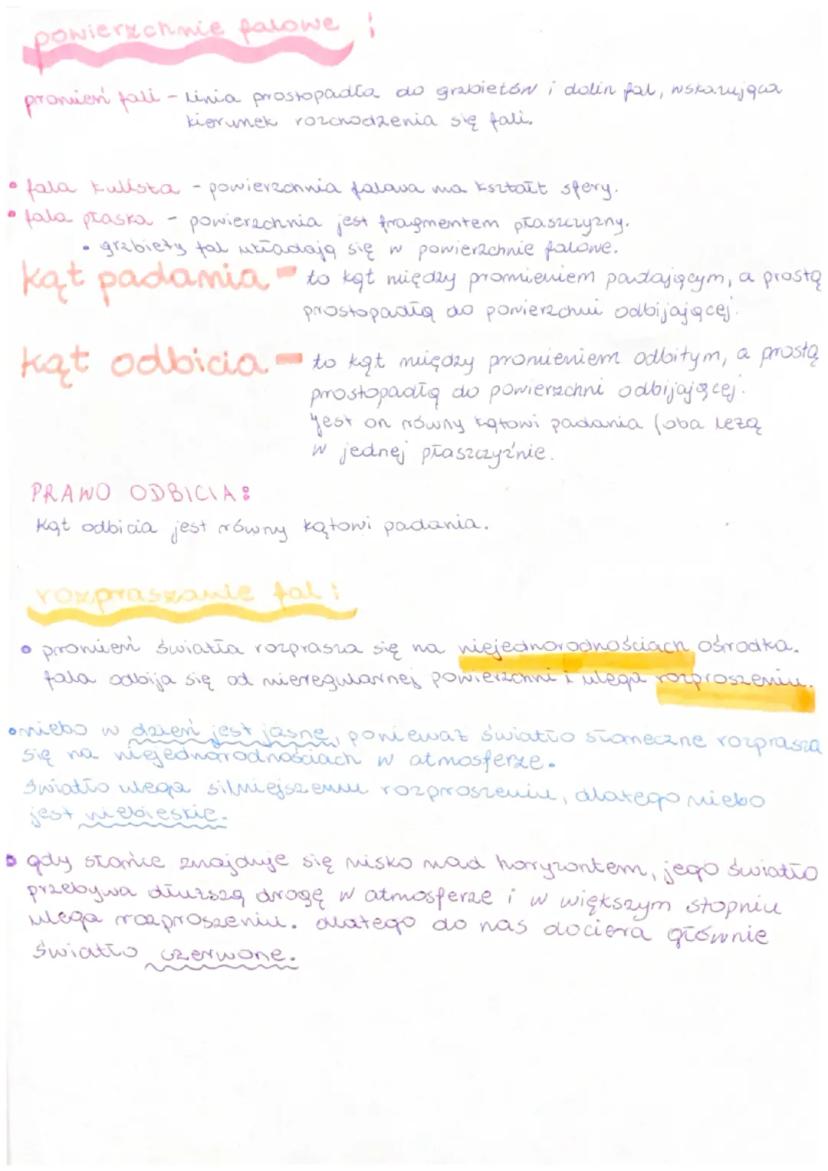 powierzchnie falowe :
promień fali - linia prostopadła do grzbietów i dolin fal, wskazująca
kierunek rozchodzenia się fali.
• fala kulista - powierzchnia falowa ma kształt sfery.
• fala płaska - powierzchnia jest fragmentem płaszczyzny.
• grzbiety fal układają się w powierzchnie falowe.
kąt padania - to kąt między promieniem padającym, a prostą
prostopadłą do powierzchni odbijającej.
kąt odbicia - to kąt między promieniem odbitym, a prostą
prostopadłą do powierzchni odbijającej.
jest on równy kątowi padania (oba leżą
w jednej płaszczyźnie.
PRAWO ODBICIA:
kąt odbicia jest równy kątowi padania.
rozpraszanie fal :
• promień światła rozprasza się na niejednorodnościach ośrodka.
fala odbija się od nieregularnej powierzchni i ulega rozproszeniu.
• niebo w dzień jest jasne, ponieważ światło słoneczne rozprasza
się na niejednorodnościach w atmosferze.
światło ulega silniejszemu rozproszeniu, dlatego niebo
jest niebieskie.
• gdy słońce znajduje się nisko nad horyzontem, jego światło
przebywa dłuższą drogę w atmosferze i w większym stopniu
ulega rozproszeniu. dlatego do nas dociera głównie
światło czerwone.